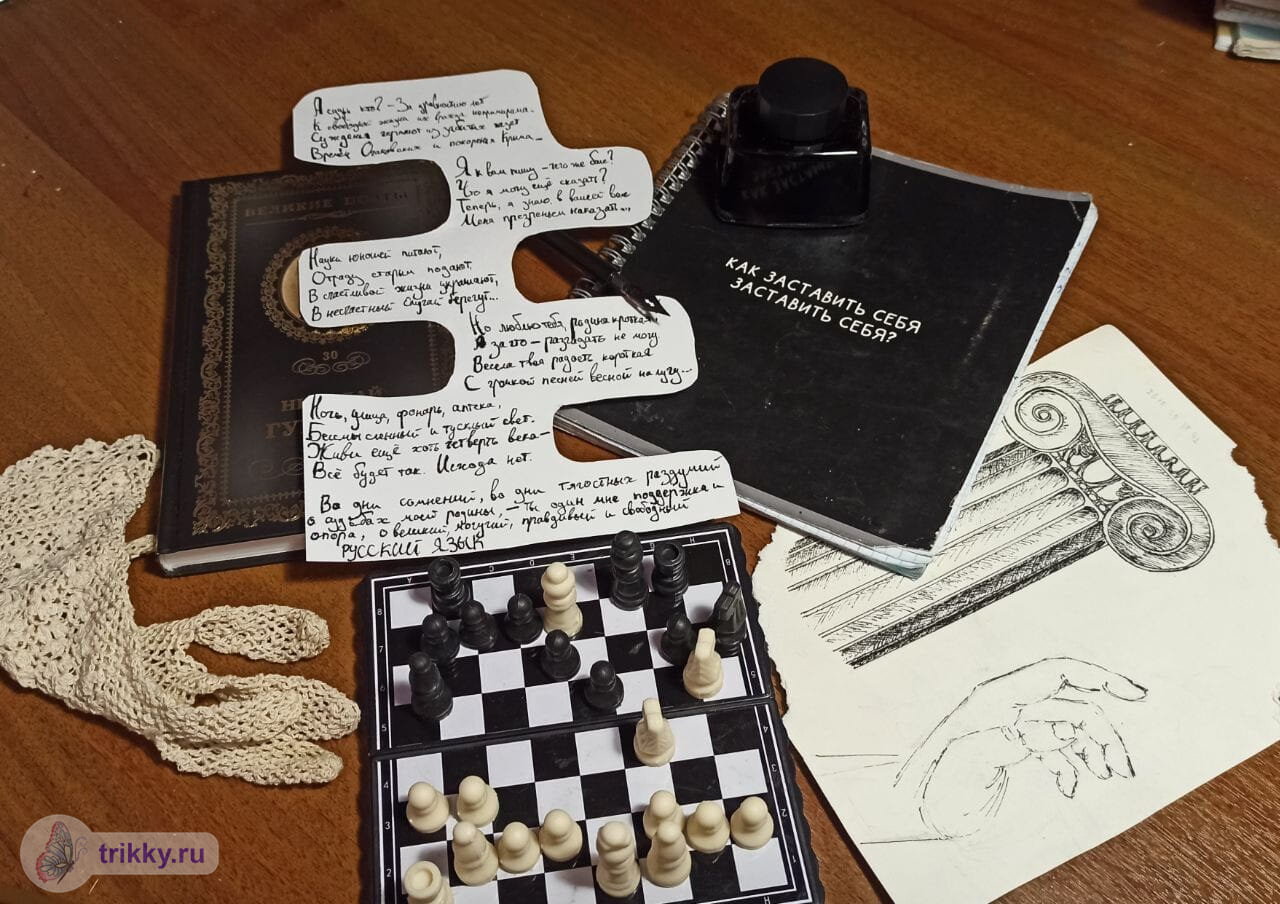 А судьи кто? – За древностию лет
К свободной жизни их вражда непримирима.
Сужденья черпают из забытых газет
Времён Очаковских и покоренья Крыма...
Я к вам пишу – чего же боле?
Что я могу ещё сказать?
Теперь, я знаю, в вашей воле
Меня презреньем наказать...
Науки юношей питают,
Отраду старым подают,
В счастливой жизни украшают,
В несчастный случай берегут...
Но люблю тебя, родина кроткая!
А за что – разгадать не могу
Весела твоя радость короткая
С громкой песней весной на лугу...
Ночь, улица, фонарь, аптека,
Бессмысленный и тусклый свет.
Живи ещё хоть четверть века –
Всё будет так. Исхода нет.
Во дни сомнений, во дни тягостных раздумий
о судьбах моей родины, – ты один мне поддержка и
опора, о великий, могучий, правдивый и свободный
РУССКИЙ ЯЗЫК
ВЕЛИКИЕ ПОЭТЫ
30
КАК ЗАСТАВИТЬ СЕБЯ
ЗАСТАВИТЬ СЕБЯ?
trikky.ru